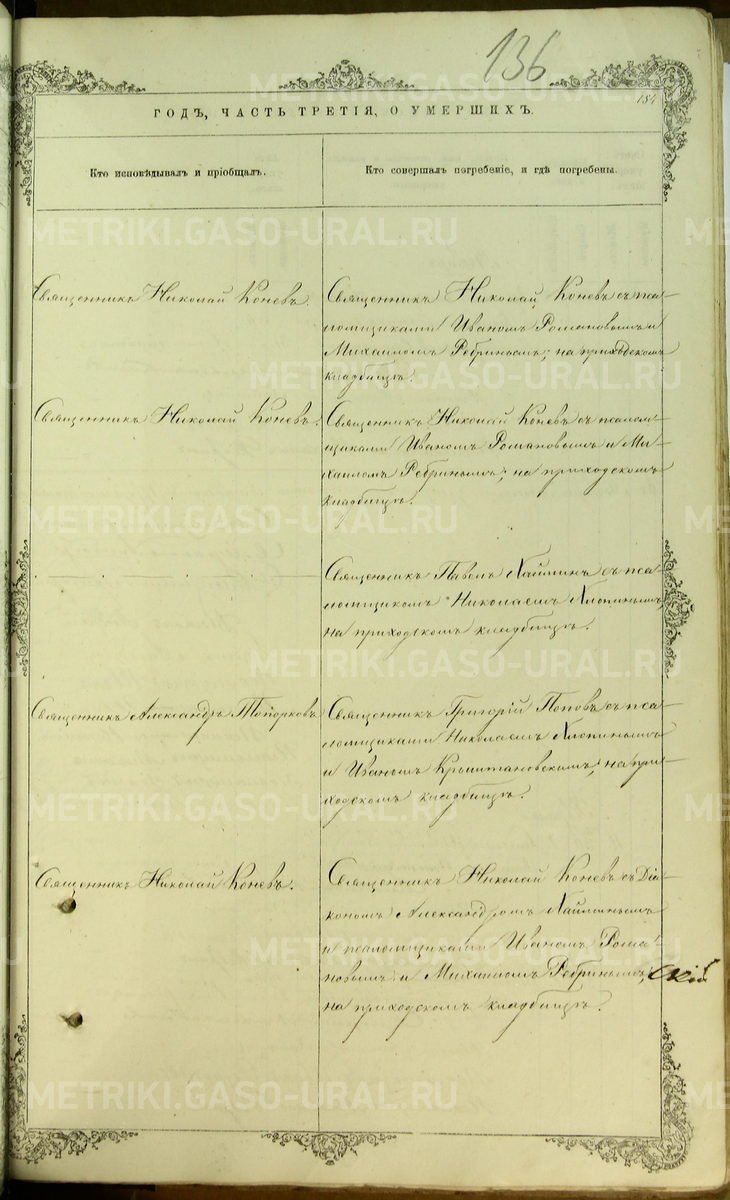 136
184
ГОДЪ, ЧАСТЬ ТРЕТІЯ, О УМЕРШИХЪ.
Кто исповѣдывалъ и пріобщалъ.
Кто совершалъ погребеніе, и гдѣ погребены.
Священникъ Николай Коневъ.
Священникъ Николай Коневъ съ пса-
ломщиками Иваномъ Романовымъ и
Михаиломъ Ребринымъ; на приходскомъ
кладбищѣ.
Священникъ Николай Коневъ.
Священникъ Николай Коневъ съ псалом-
щиками Иваномъ Романовымъ и Ми-
хаиломъ Ребринымъ; на приходскомъ
кладбищѣ.
Священникъ Павелъ Хайминъ съ пса-
ломщикомъ Николаемъ Хлопинымъ,
на приходскомъ кладбищѣ.
Священникъ Александръ Топорковъ
Священникъ Григорій Поповъ съ пса-
ломщиками Николаемъ Хлопинымъ
и Иваномъ Крыштановскимъ; на при-
ходскомъ кладбищѣ.
Священникъ Николай Коневъ.
Священникъ Николай Коневъ съ Діа-
кономъ Александромъ Хайминымъ
и псаломщиками Иваномъ Рома-
новымъ и Михаиломъ Ребринымъ,
на приходскомъ кладбищѣ.
METRIKI.GASO-URAL.RU